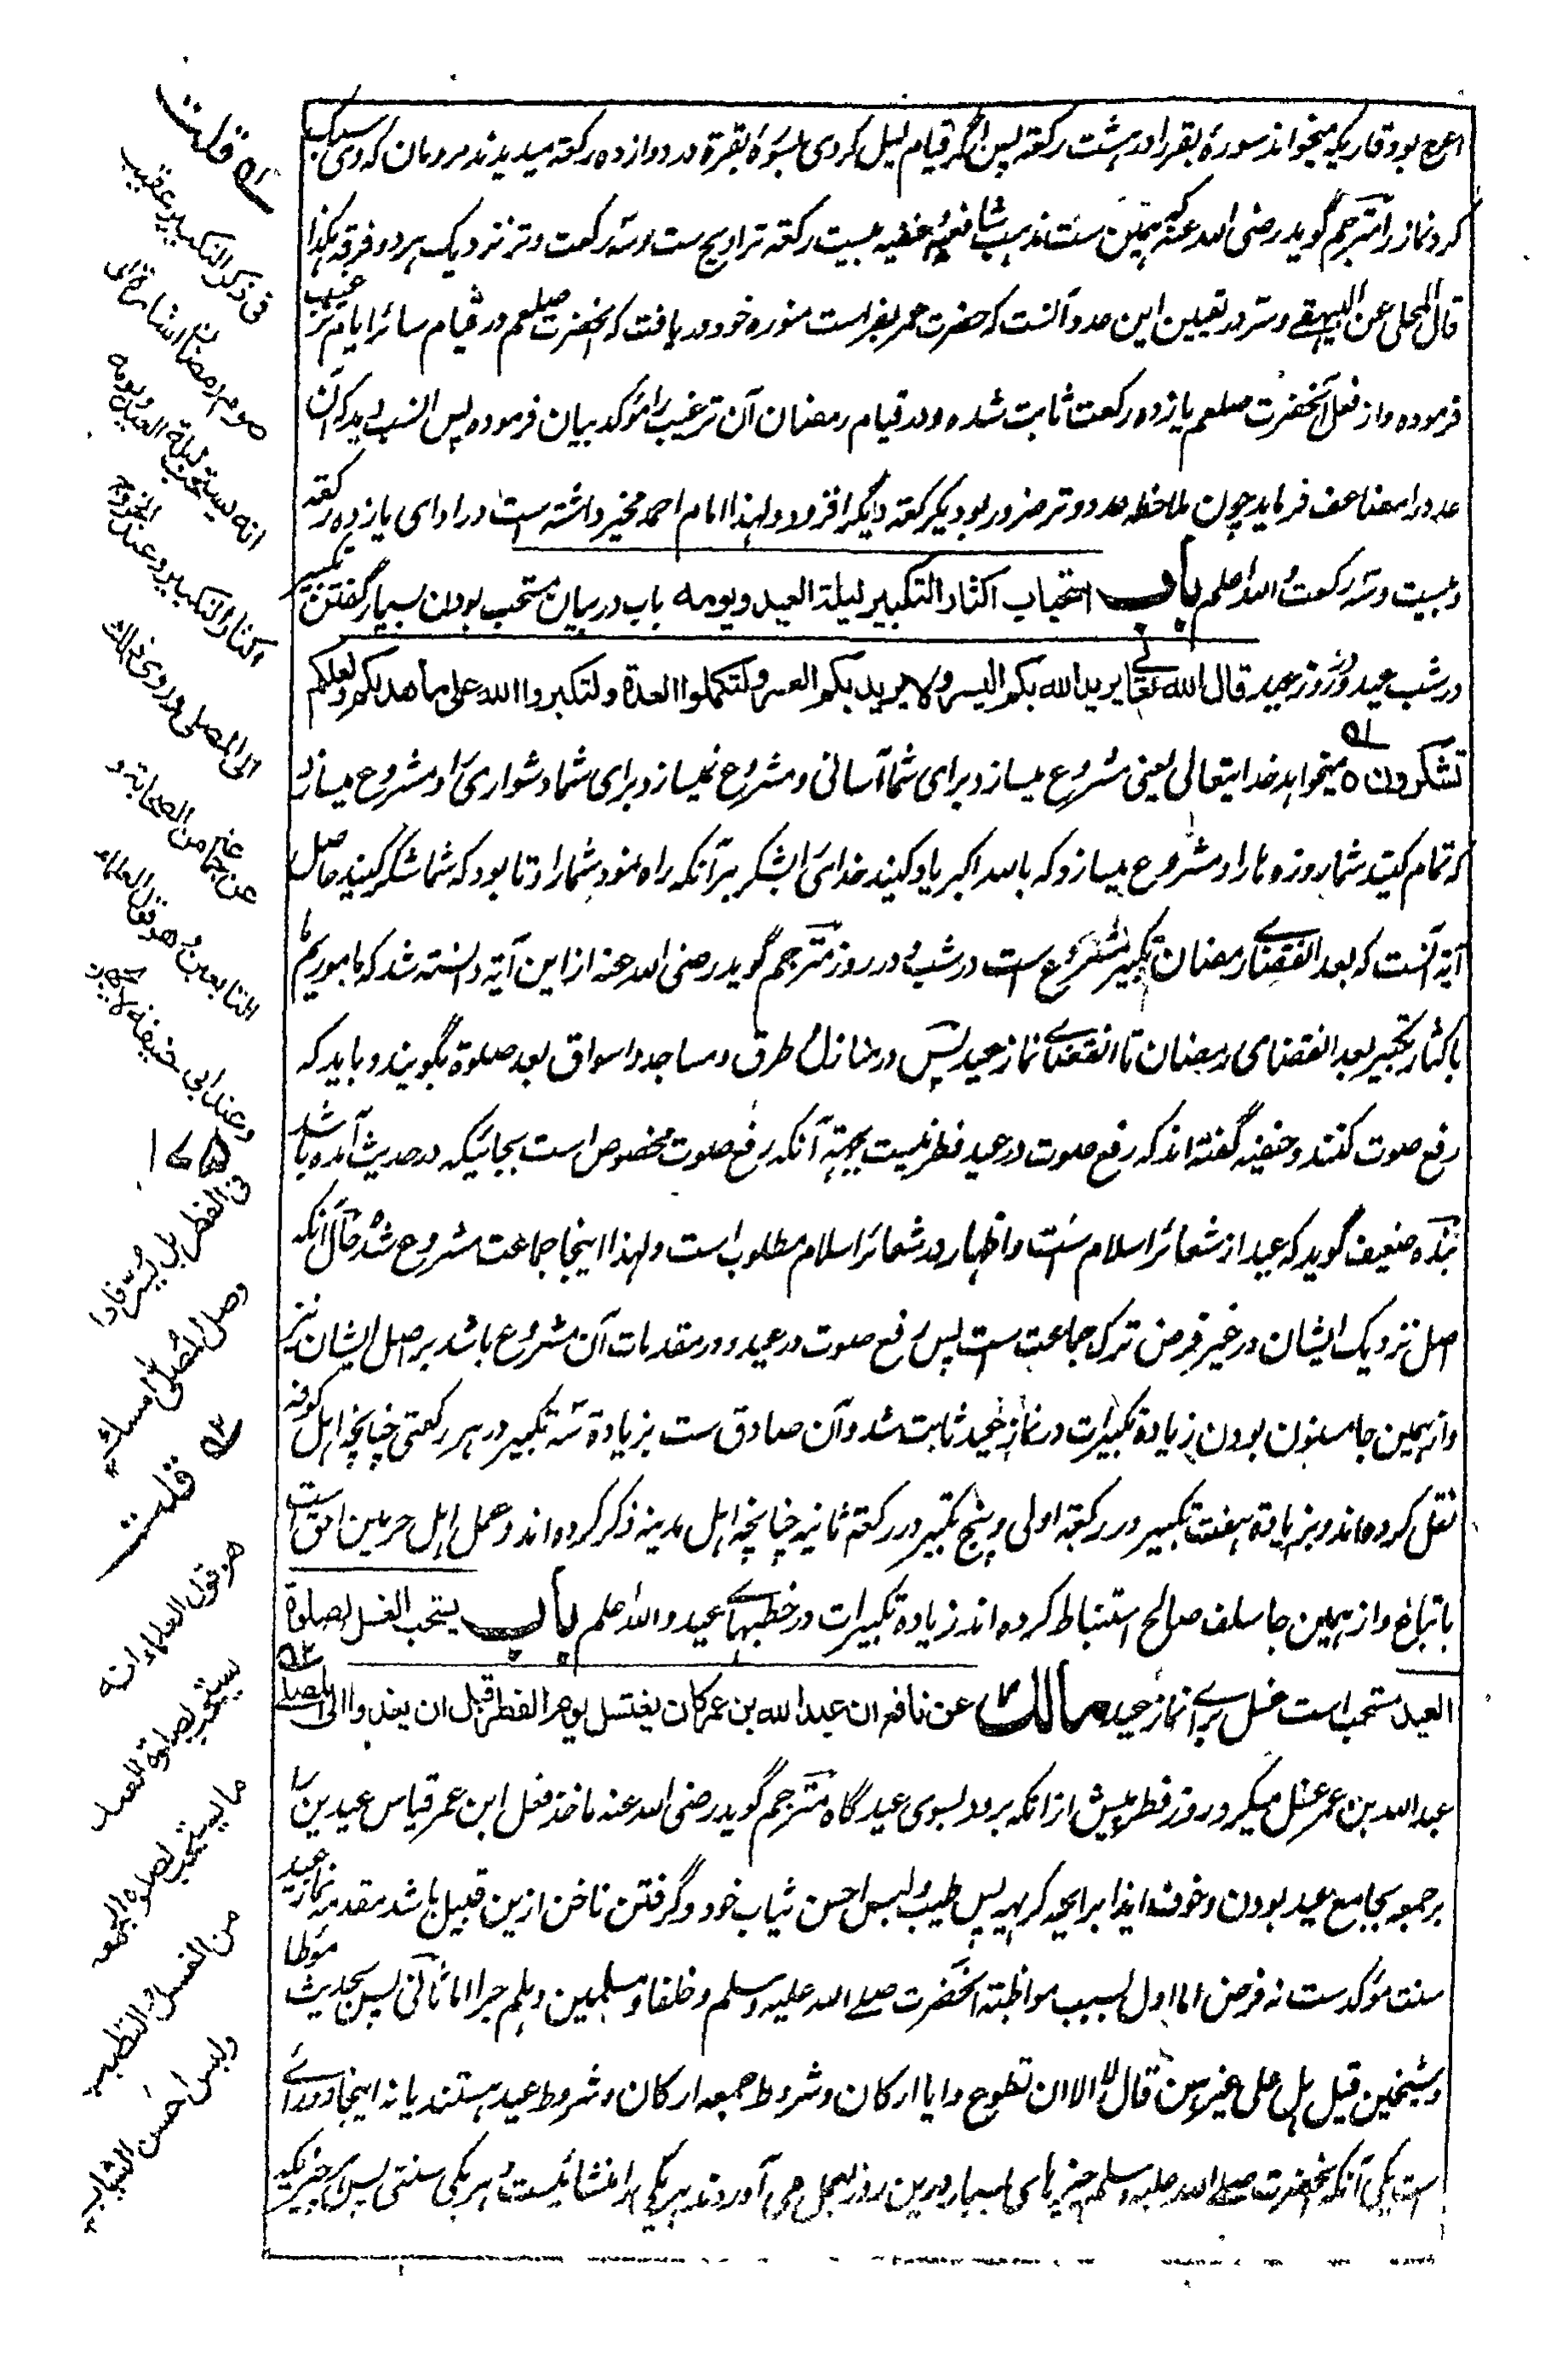 اعرج بود و قاریکه میخواند سورهٔ بقر را در هشت رکعة پس اگر قیام لیل کردی بسورهٔ بقرة در دوازده رکعة میدیدند مردمان که وی سبک
کرد نماز را مترجم گوید رضی الله عنه همین ست مذهب شافعیه و حنفیه بیست رکعة تراویح ست و سه رکعت وتر نزدیک هر دو فرقه هکذا
قال المحلی عن البیهقے و سر در تعیین این عدد آنست که حضرت عمر بفراست منوره خود دریافت که آنحضرت صلعم در قیام سائر ایام ترغیب
فرموده و از فعل آنحضرت صلعم یازده رکعت ثابت شده و در قیام رمضان آن ترغیب را مؤکد بیان فرموده پس انسب دید که آن
عدد را مضاعف فرماید چون ملاحظه عدد وتر ضرور بود یکرکعة دیگر افزود و لهذا امام احمد مخیر داشته ست در ادای یازده رکعة
و بیست و سه رکعت و الله اعلم باب استحباب اکثار التکبیر لیلة العید و یومه باب در بیان مستحب بودن بسیار گفتن تکبیر
در شب عید و روز عید قال الله تعالے یرید الله بکم الیسر ولا یرید بکم العسر ولتکملوا العدة ولتکبروا الله علی ما هدیکم ولعلکم
تشکرون ه میخواهد خدایتعالی یعنی مشروع میسازد برای شما آسانی و مشروع نمیسازد برای شما دشواری را و مشروع میسازد
که تمام کنید شمار روزه ها را و مشروع میسازد که بالله اکبر یاد کنید خدای را بشکر برآنکه راه نمود شما را و تا بود که شما شکر کنید حاصل
آیة آنست که بعد انقضاے رمضان تکبیر مشروع ست در شب و در روز مترجم گوید رضی الله عنه از این آیة دانسته شد که ماموریم ما
باکثار تکبیر بعد انقضای رمضان تا انقضاے نماز عید پس در منازل و طرق و مساجد و اسواق بعد صلوة بگویند و باید که
رفع صوت کنند و حنفیه گفته اند که رفع صوت در عید فطر نیست بجهة آنکه رفع صوت مخصوص است بجائیکه در حدیث آمده باشد
بنده ضعیف گوید که عید از شعائر اسلام ست و اظهار در شعائر اسلام مطلوب است و لهذا اینجا جماعت مشروع شد حال آنکه
اصل نزدیک ایشان در غیر فرض ترک جماعت ست پس رفع صوت در عید و در مقدمات آن مشروع باشد بر اصل ایشان نیز
و از همین جا مسنون بودن زیادة تکبیرات در نماز عید ثابت شد و آن صادق ست بزیادة سه تکبیر در هر رکعتی چنانچه اهل کوفه
نقل کرده اند و بزیادة هفت تکبیر در رکعة اولی و پنج تکبیر در رکعة ثانیه چنانچه اهل مدینه ذکر کرده اند و عمل اهل حرمین احق است
باتباع و از همین جا سلف صالح استنباط کرده اند زیادة تکبیرات در خطبهاے عید و الله اعلم باب یستحب الغسل لصلوة
العید مستحب است غسل براے نماز عید مالک عن نافع ان عبد الله بن عمر کان یغتسل یوم الفطر قبل ان یغدوا الی المصلی
عبد الله بن عمر غسل میکرد روز فطر پیش از آنکه برود بسوی عیدگاه مترجم گوید رضی الله عنه ماخذ فعل ابن عمر قیاس عیدین ست
بر جمعه بجامع عید بودن و خوف ایذا برایحه کریهه پس طیب و لبس احسن ثیاب خود و گرفتن ناخن ازین قبیل باشد مقدمه نماز عید
سنت مؤکد ست نه فرض اما اول بسبب مواظبة آنحضرت صلے الله علیه و سلم و خلفا و مسلمین و هلم جرا اما ثانی پس بحدیث مؤطا
و شیخین قیل هل علی غیرهن قال لا الا ان تطوع و ایا ارکان و شروط جمعه ارکان و شروط عید هستند یا نه اینجا دو راے
است یکی آنکه آنحضرت صلے الله علیه و سلم چیزهای بسیار درین روز بعمل می آوردند هر یکی را منشائیست و هر یکی سنتی پس هر چیزیکه
۵۱ قلت
فی ذکر التکبیر عقیب
صوم رمضان اشارة الی
انه یستحب لیلة العید و یومه
اکثار التکبیر و عند الخروج
الی المصلی و روی ذلک
عن جماعة من الصحابة و
التابعین و هو قول العلماء
و عند ابی حنیفة لا یجهر
فی الفطر بل یُسِرّ فاذا
وصل المُصلّٰی امسک
۵۲ قلت
هو قول العلماء انه
یستحب لصلوة العید
ما یستحب لصلوة الجمعة
من الغسل و التطیب
و لبس احسن الثیاب